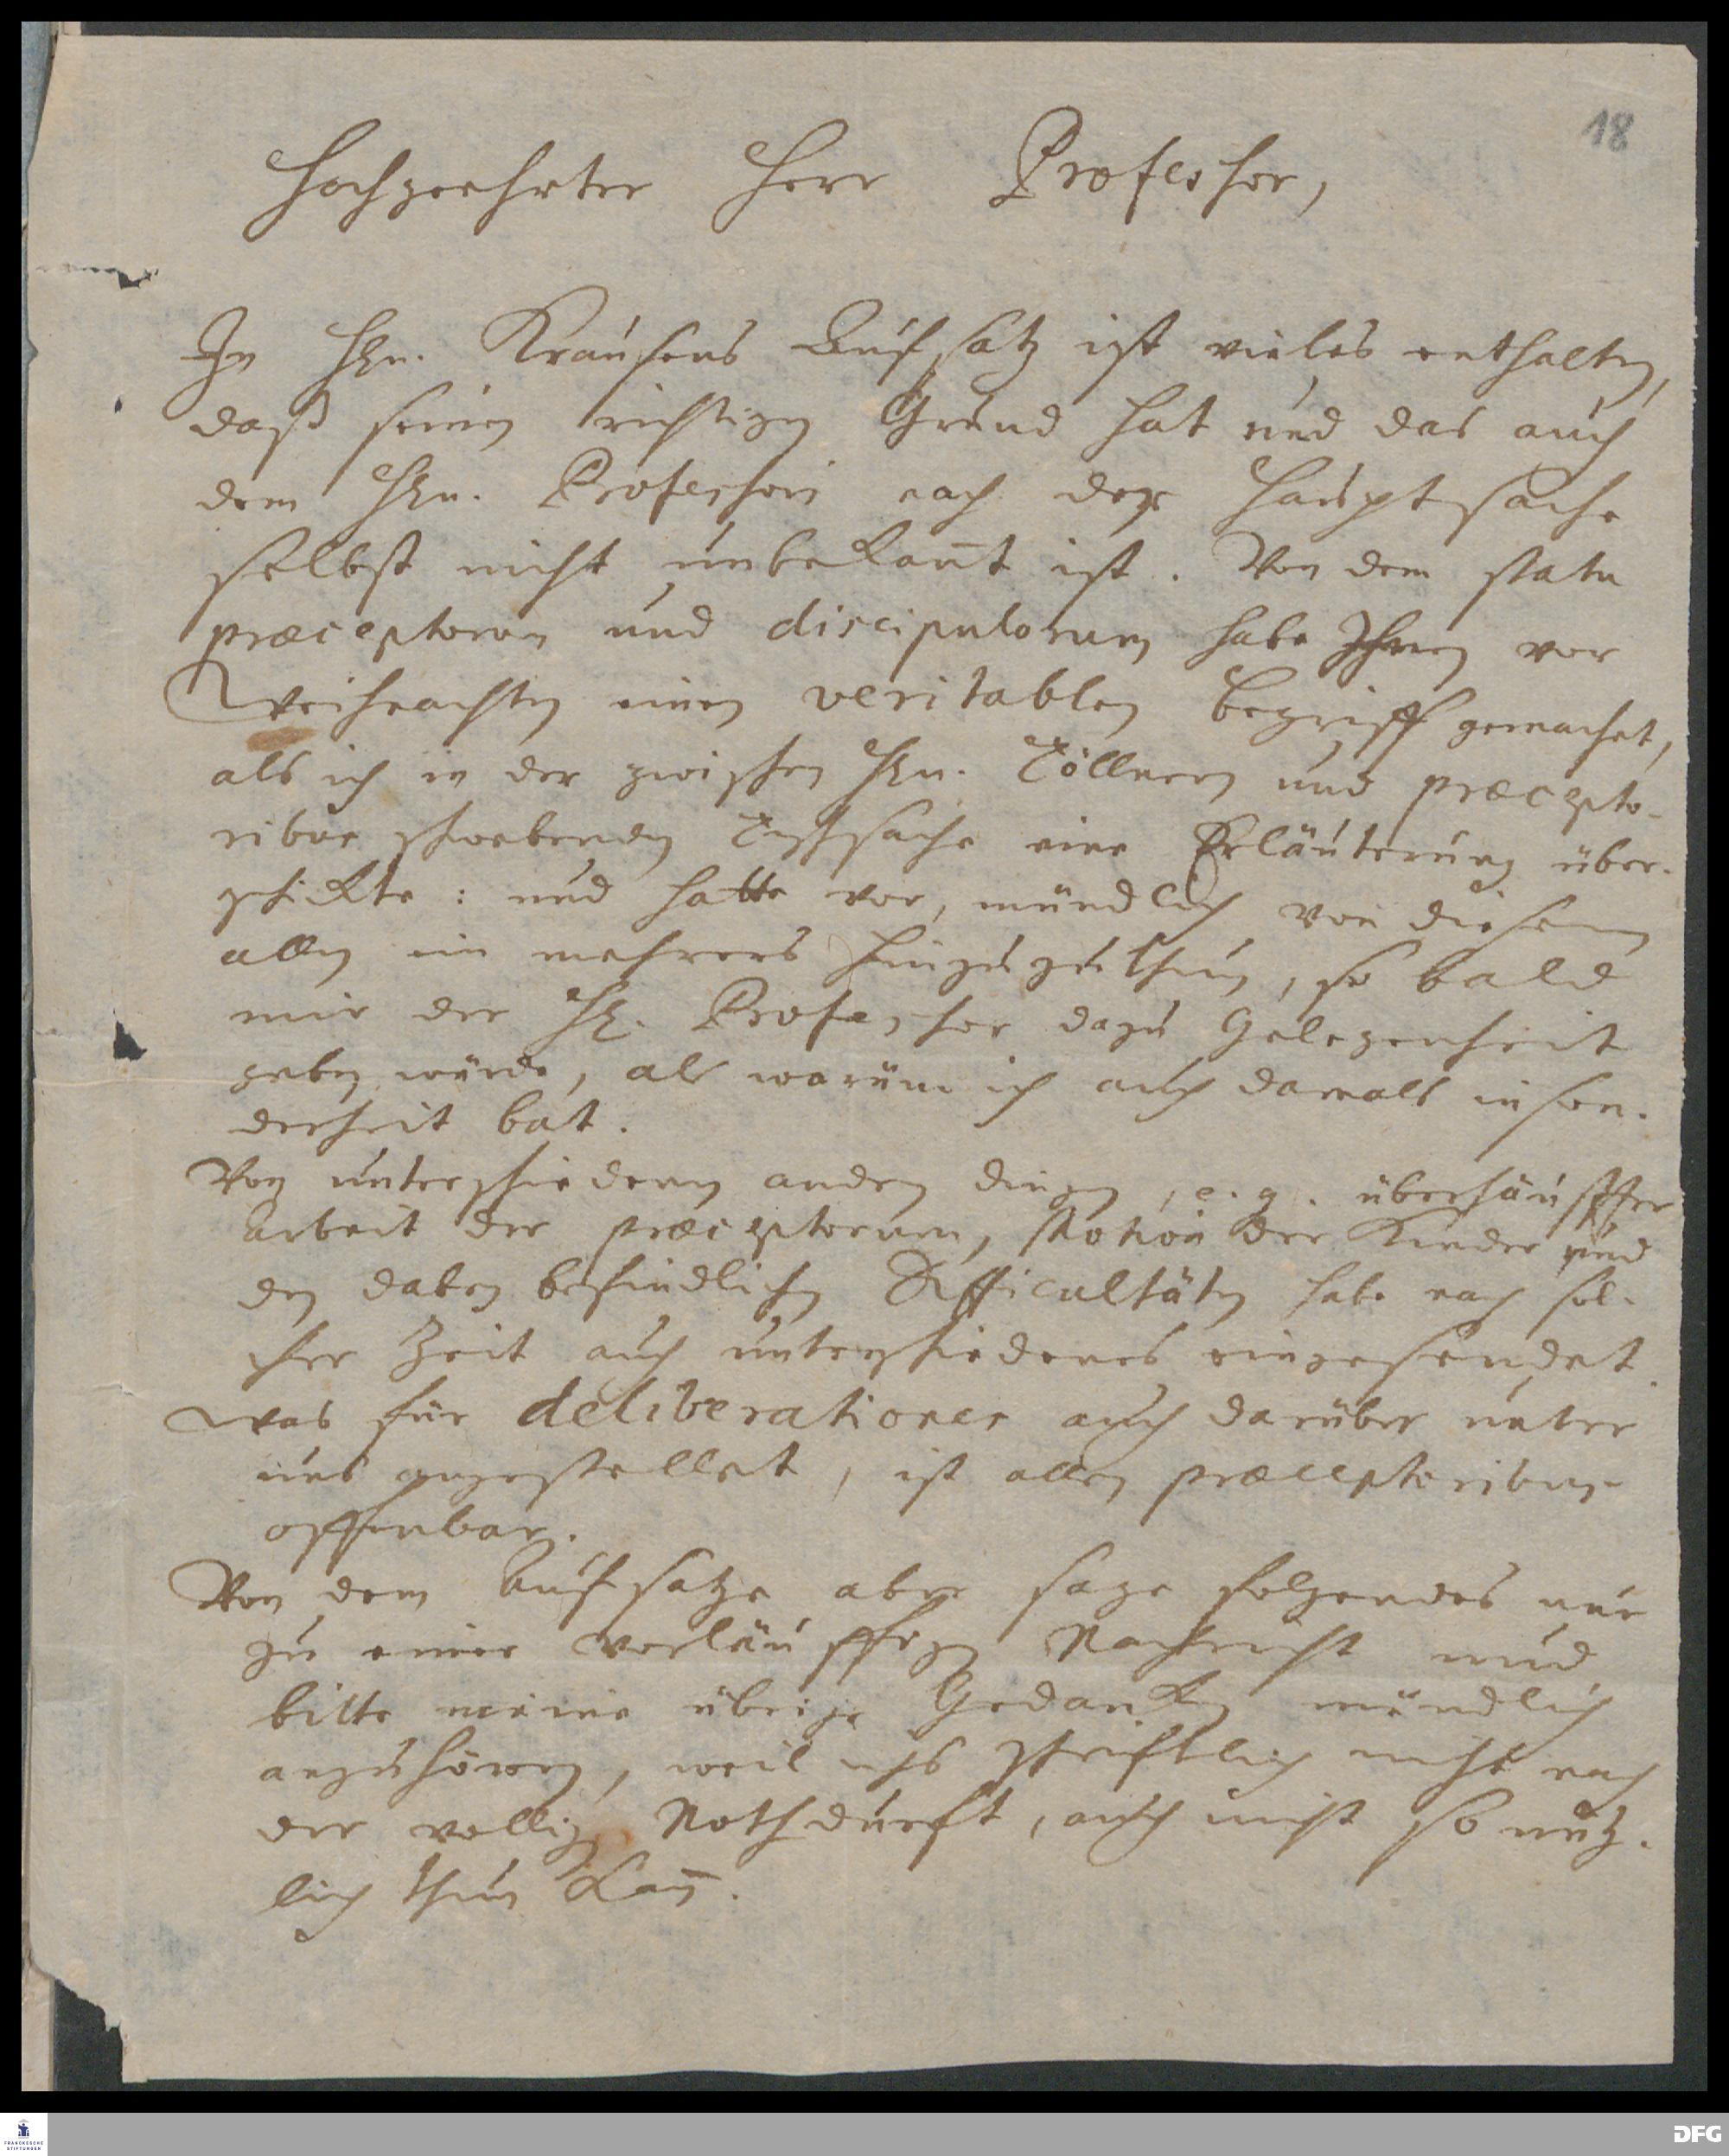 18
Hochgeehrter Herr Professor,
In Hrn. Krausens Aufsatz ist vieles enthalten,
daß seinen richtigen Grund hat und das auch
dem Hrn. Professori nach der Hauptsache
selbst nicht unbekañt ist. Von dem statu
præceptorum und discipulorum habe Ihnen vor
Weihnachten einen veritablen Begriff gemachet,
als ich in der zwischen Hrn. Töllnern und præcepto-
ribus schwebenden Tischsache eine Erläuterung über-
schickte: und hatte vor, mündlich von diesem
allen ein mehrers hinzuzuthun, so bald
mir der Hr. Professor dazu Gelegenheit
geben würde, als warum ich auch damals inson-
derheit bat.
Von unterschiedenen andern dingen, e.g. überhäuffter
Arbeit der præceptorum, Motion der Kinder und
den dabey befindlichen Difficultäten habe nach sol-
cher Zeit auch unterschiedenes eingesendet.
Was für deliberationes auch darüber unter
uns angestellet, ist allen præceptoribus
offenbar.
Von dem Aufsatze aber sage folgendes nur
zu einer vorläuffigen Nachricht und
bitte meine übrige Gedancken mündlich
anzuhören, weil ichs schriftlich nicht nach
der völligen Nothdurft, auch nicht so nütz-
lich thun kañ.
FRANCKESCHE
STIFTUNGEN
DFG